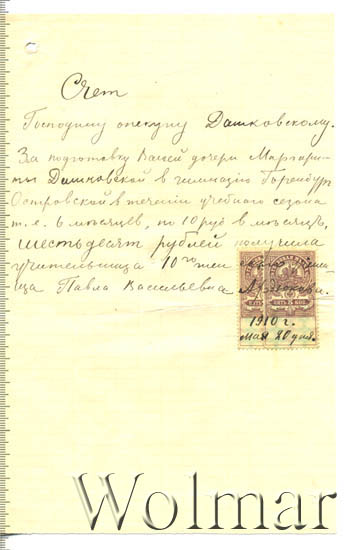 Счет
Господину опекуну Дашковскому.
За подготовку Вашей дочери Маргари-
ты Дашковской в гимназію Гореидур
Островской в теченіи учебнаго сезона
т.е. 6 мѣсяцев, по 10 руб в мѣсяцъ,
шестьдесят рублей получила
учительница 10го
ца Павла Васильевна
1910 г.
Мая 20 дня.
Wolmar